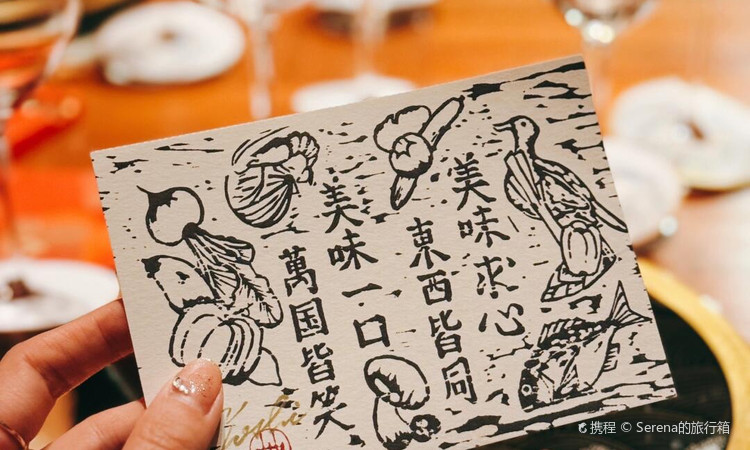 美味求心
東西皆同
美味一口
萬国皆笑
携程 © Serena的旅行箱